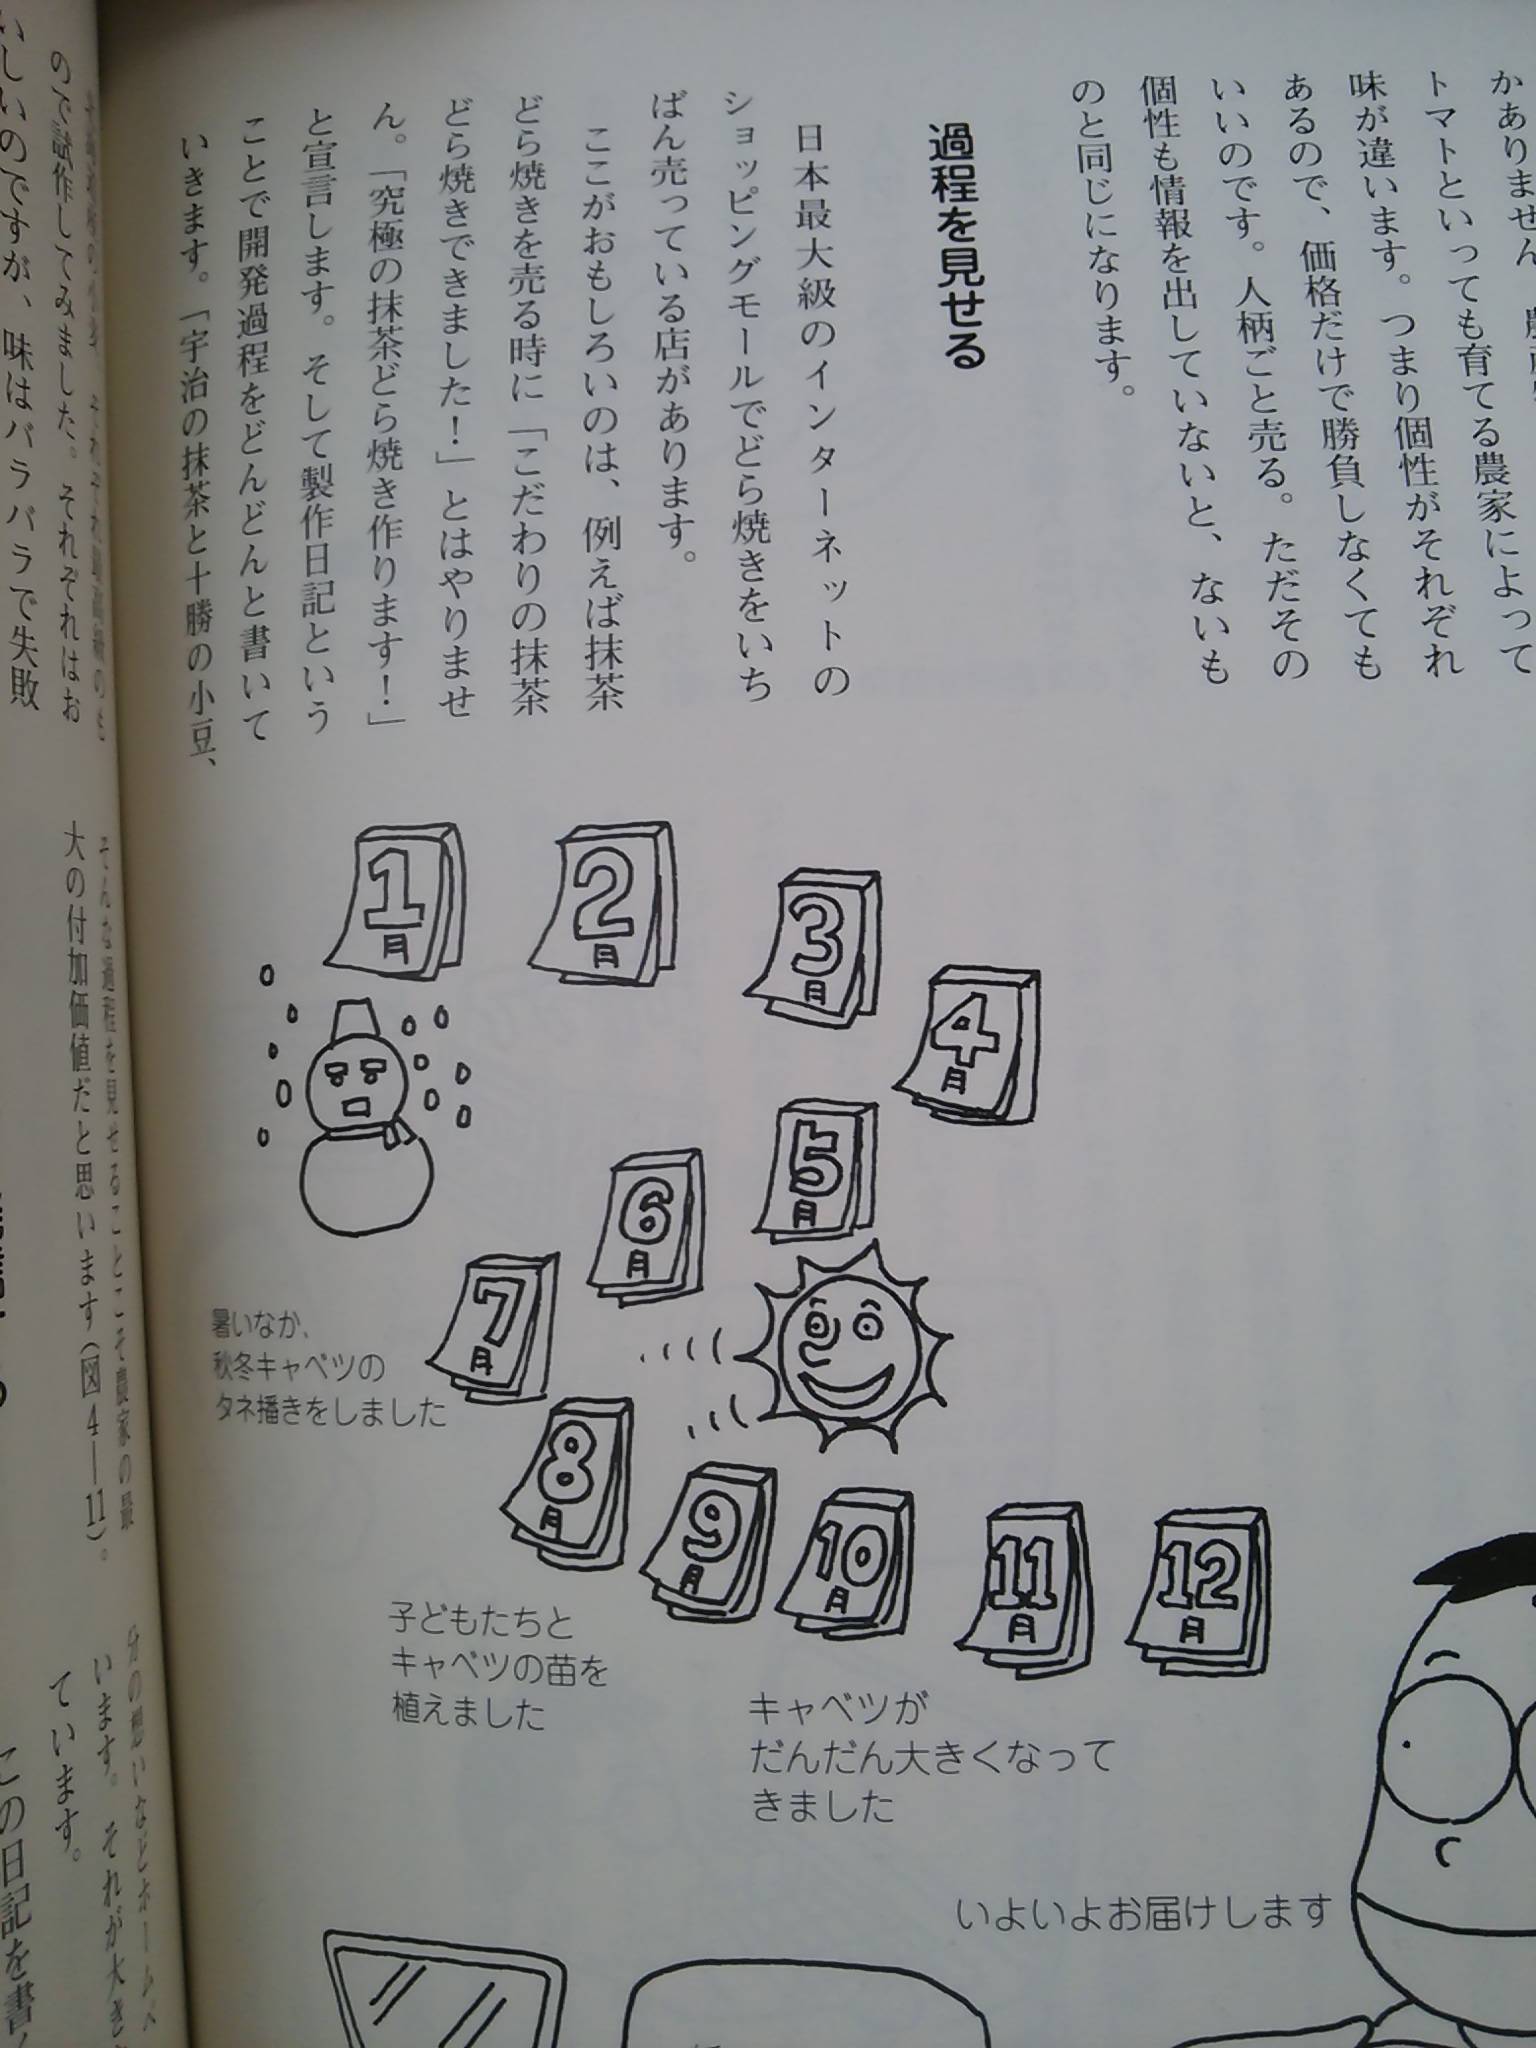 トマトといっても育てる農家によって
味が違います。つまり個性がそれぞれ
あるので、価格だけで勝負しなくても
いいのです。人柄ごと売る。ただその
個性も情報を出していないと、ないも
のと同じになります。
過程を見せる
日本最大級のインターネットの
ショッピングモールでどら焼きをいち
ばん売っている店があります。
ここがおもしろいのは、例えば抹茶
どら焼きを売る時に「こだわりの抹茶
どら焼きできました！」とはやりませ
ん。「究極の抹茶どら焼き作ります！」
と宣言します。そして製作日記という
ことで開発過程をどんどんと書いて
いきます。「宇治の抹茶と十勝の小豆、
1月
2月
3月
4月
5月
6月
7月
8月
9月
10月
11月
12月
暑いなか、
秋冬キャベツの
タネ播きをしました
子どもたちと
キャベツの苗を
植えました
キャベツが
だんだん大きくなって
きました
いよいよお届けします
ので試作してみました。それぞれはお
いしいのですが、味はバラバラで失敗
そんな過程を見せることこそ農家の最
大の付加価値だと思います（図4―11）。
います。それが大き
ています。
この日記を書